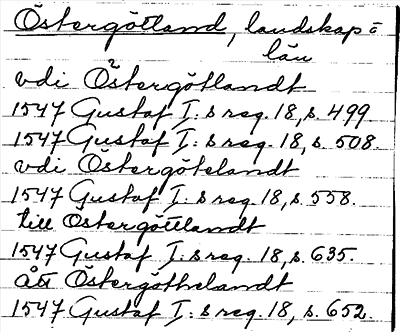 Östergötland, landskap o
län
vdi Östergötlandt
1547 Gustaf I:s reg. 18, s. 499.
1547 Gustaf I:s reg. 18, s. 508.
vdi Östergötelandt
1547 Gustaf I:s reg. 18, s. 558.
till Östergöttlandt
1547 Gustaf I:s reg. 18, s. 635.
átt Östergöthelandt
1547 Gustaf I:s reg. 18, s. 652.